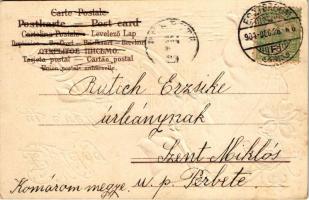 Carte Postale
Postkarte — Post card
Cartolina Postale — Levelező Lap
ОТКРЫТОЕ ПИСЬМО.
Tarjeta postal — Cartão postal
Union postale universelle.
Rutich Erzsike
úrleánynak
Szent Miklós
Komárom megye. u. p. Perbete.